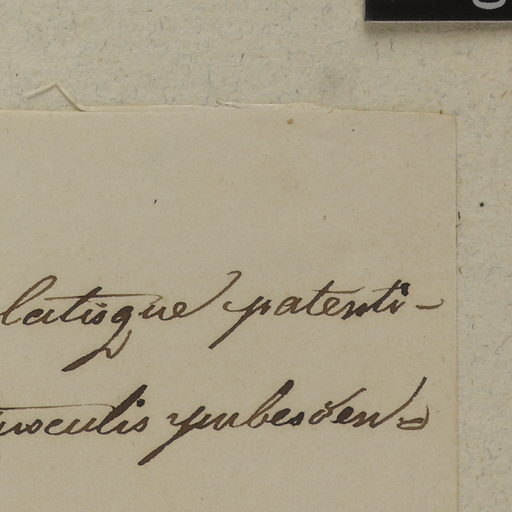 latisque patenti-
usculis pubescen=